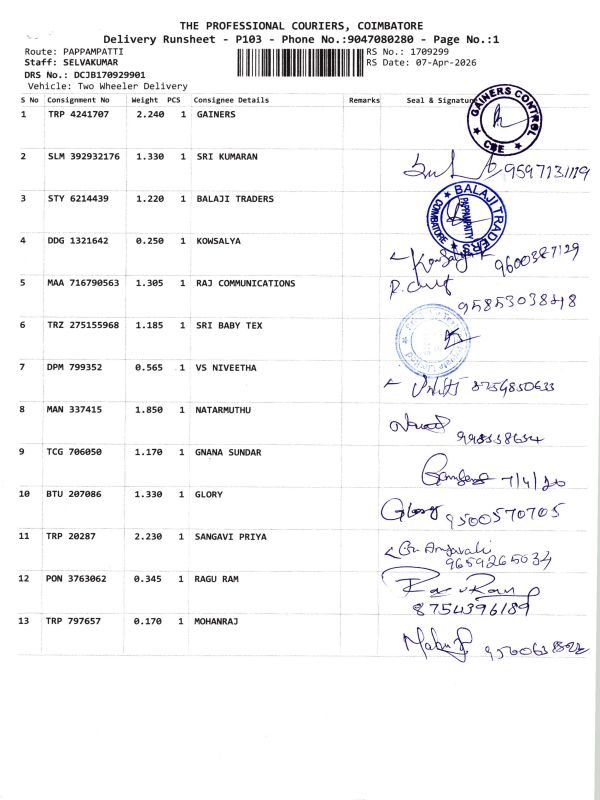 THE PROFESSIONAL COURIERS, COIMBATORE
Delivery Runsheet - P103 - Phone No.:9047080280 - Page No.:1
Route: PAPPAMPATTI
RS No.: 1709299
Staff: SELVAKUMAR
RS Date: 07-Apr-2026
DRS No.: DCJB170929901
Vehicle: Two Wheeler Delivery
S No Consignment No Weight PCS Consignee Details Remarks Seal & Signature
1 TRP 4241707 2.240 1 GAINERS
GAINERS CONTROL
CBE
2 SLM 392932176 1.330 1 SRI KUMARAN
3 STY 6214439 1.220 1 BALAJI TRADERS
BALAJI TRADERS
PAPPAMPATTY
COIMBATORE
4 DDG 1321642 0.250 1 KOWSALYA
9600387129
5 MAA 716790563 1.305 1 RAJ COMMUNICATIONS
9585303848
6 TRZ 275155968 1.185 1 SRI BABY TEX
7 DPM 799352 0.565 1 VS NIVEETHA
8754850633
8 MAN 337415 1.850 1 NATARMUTHU
9 TCG 706050 1.170 1 GNANA SUNDAR
7/4/26
10 BTU 207086 1.330 1 GLORY
Glory 9500570705
11 TRP 20287 2.230 1 SANGAVI PRIYA
9659265034
12 PON 3763062 0.345 1 RAGU RAM
8754396189
13 TRP 797657 0.170 1 MOHANRAJ